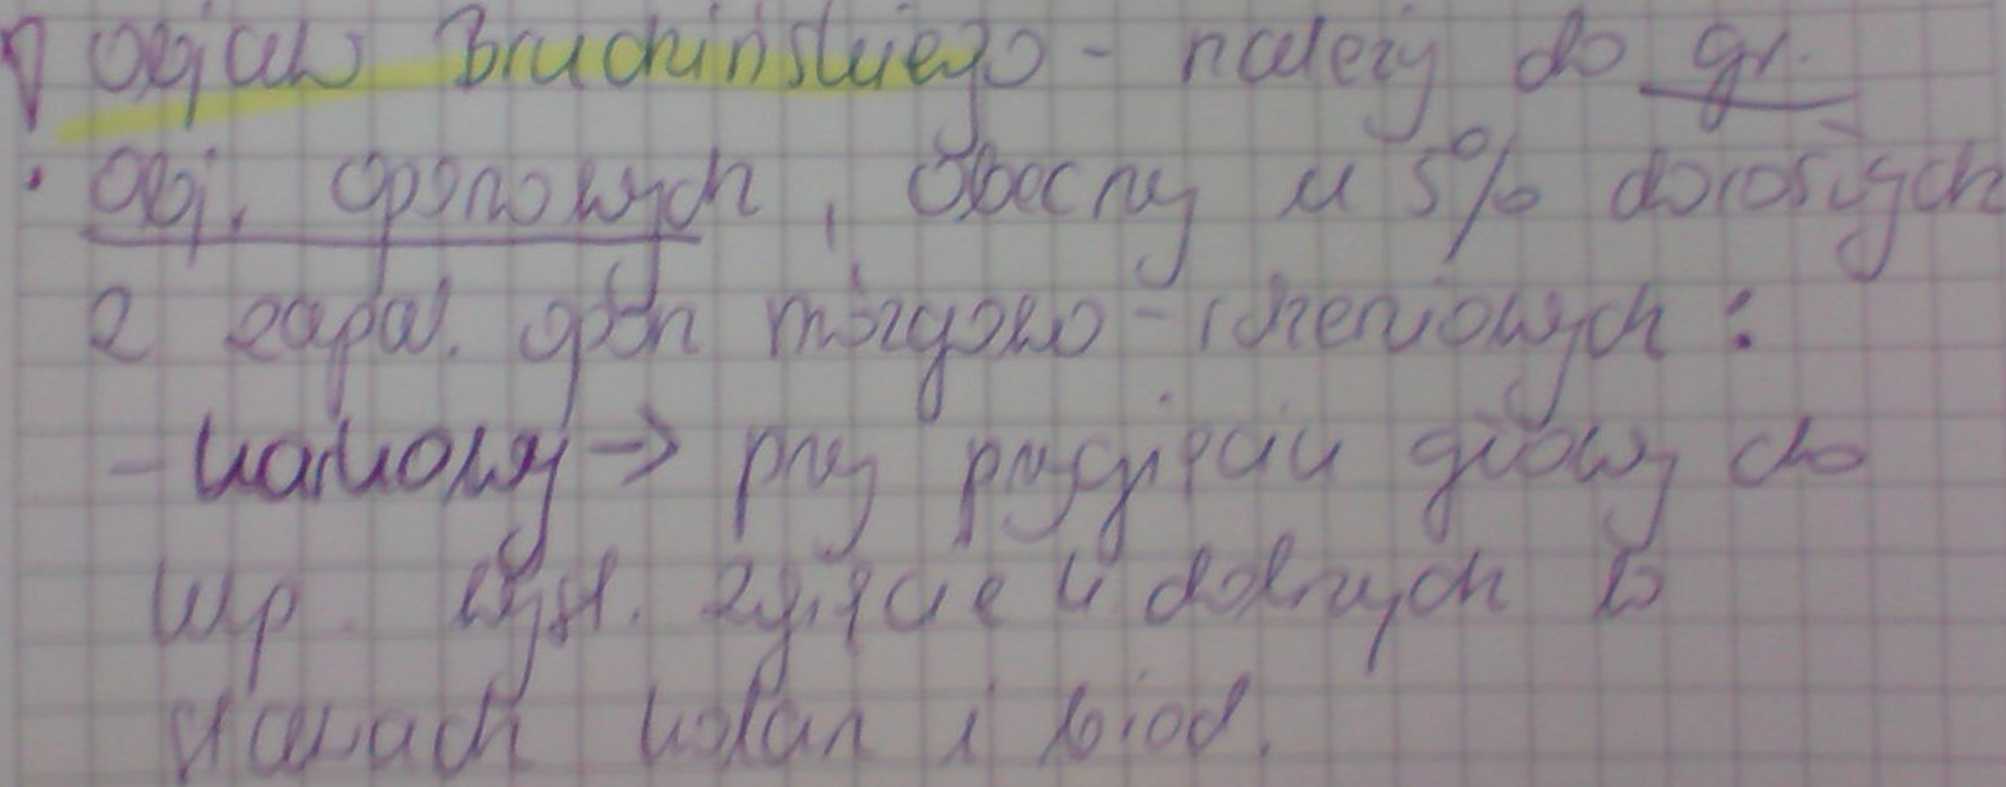 objaw Brudzińskiego - należy do gr.
obj. oponowych, obecny u 5% dorosłych
z zapal. opon mózgowo-rdzeniowych:
- karkowy → przy przygięciu głowy do
wyst. zgięcie k dolnych w
stawach kolan i biod.